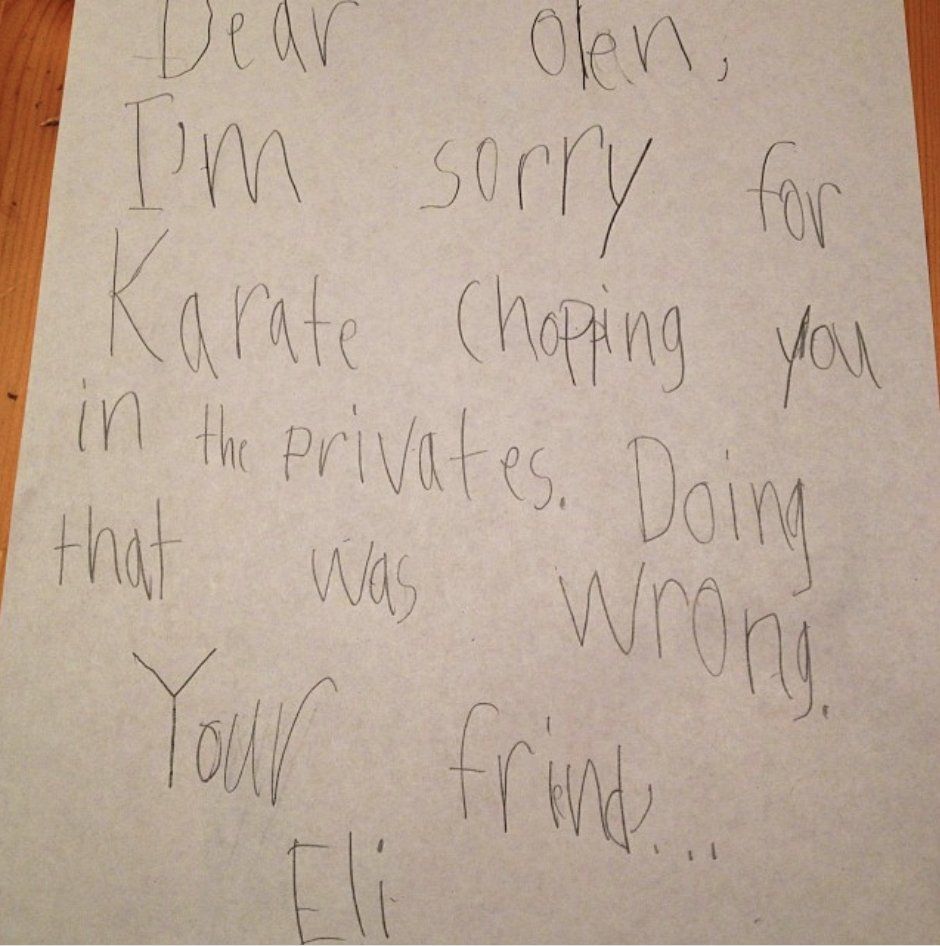 Dear Olen,
I'm sorry for
Karate Chopping you
in the privates. Doing
that was wrong.
Your friend,...
Eli